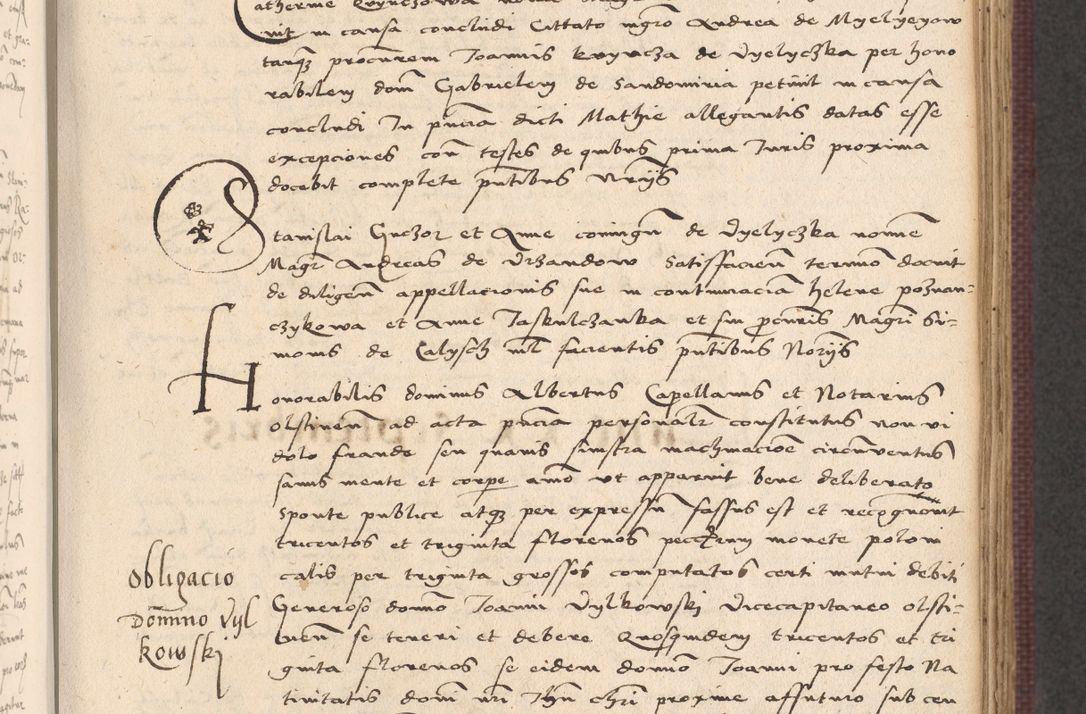 atherine Krynczowa
nit in causa concludi Cittato mgro Andrea de Myelyeyow
tanqz procurem Joannis Kryncza de Vyelyczka per hono
rabilem dom Gabrielem de Sandomiria petiuit in causa
concludi In pncia dicti Mathie allegantis datas esse
excepciones con testes de quibus prima Iuris proxima
docebit complete pntibus Nrijs
Stanislai Guczor et Anne coniugu de Vyelyczka nomine
Magr Andreas de Vrzandow satisfacien termo docuit
de diligen appellacionis sue in contumacia helene poznan=
czykowa et Anne Jaskulczanka et sui pcuris Magri Si=
monis de Calysch nil facientis pntibus Noryjs
Honorabilis dominus Albertus Capellanus et Notarius
olstinen ad acta pncia personalr constitutus non vi
dolo fraude seu quauis sinistra machinacioe circuuentus
sanus mente et corpe amo vt apparuit bene deliberato
sponte publice atqz per expressum fassus est et recognouit
tricentos et triginta florenos peccrum monete poloni
calis per triginta grossos computatos certi mutui debiti
Generoso domno Joanni Vylkowskj Vicecapitaneo olsti=
nen se teneri et debere Quosquidem tricentos et tri
ginta florenos se eidem domno Joanni pro festo Na
tiuitatis domi nri Ihu chri proxime affuturo sub cen
Obligacio
Domino Vyl
kowskj